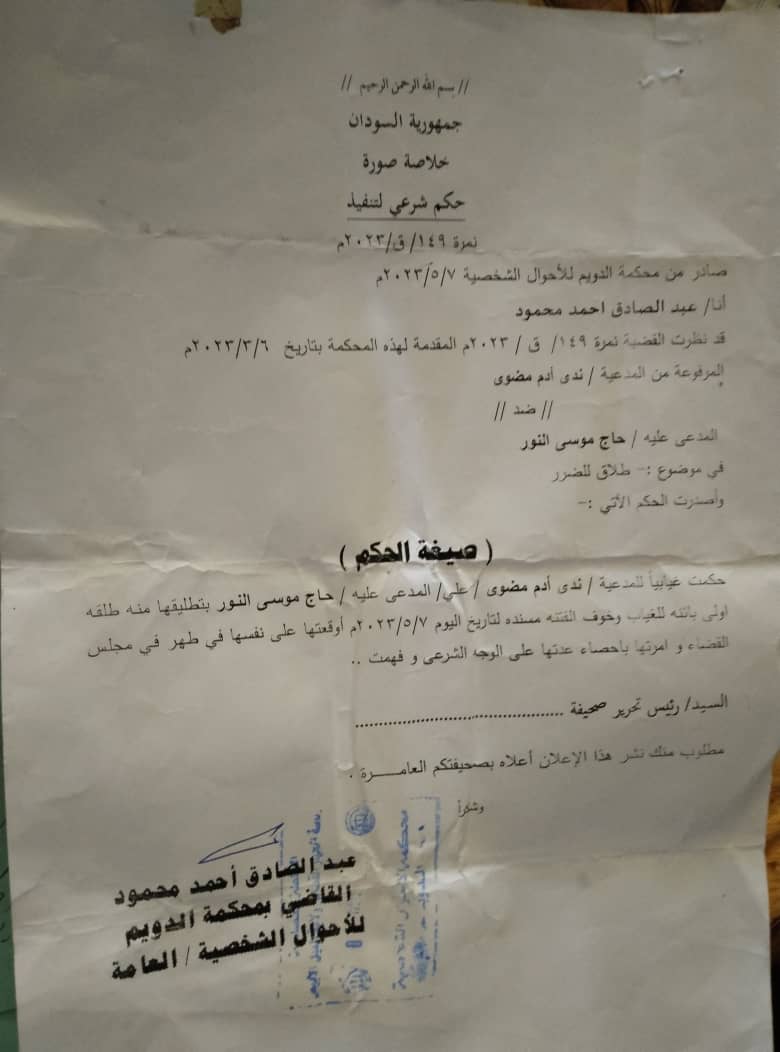 // بسم الله الرحمن الرحيم //
جمهورية السودان
خلاصة صورة
حكم شرعي لتنفيذ
نمرة ١٤٩/ ق/٢٠٢٣م
صادر من محكمة الدويم للأحوال الشخصية ٢٠٢٣/٥/٧م
أنا/ عبد الصادق احمد محمود
قد نظرت القضية نمرة ١٤٩/ ق / ٢٠٢٣م المقدمة لهذه المحكمة بتاريخ ٢٠٢٣/٣/٦م
المرفوعة من المدعية / ندى أدم مضوى
// ضد //
المدعى عليه / حاج موسى النور
في موضوع :- طلاق للضرر
وأصدرت الحكم الأتي :-
( صيغة الحكم )
حكمت غيابياً للمدعية / ندى أدم مضوى / على/ المدعى عليه / حاج موسى النور بتطليقها منه طلقه
اولى بائنه للغياب وخوف الفتنه مسنده لتاريخ اليوم ٢٠٢٣/٥/٧م أوقعتها على نفسها في طهر في مجلس
القضاء و امرتها باحصاء عدتها على الوجه الشرعى و فهمت ..
السيد/ رئيس تحرير صحيفة ..........................................
مطلوب منك نشر هذا الإعلان أعلاه بصحيفتكم العامـــــرة .
وشكراً
عبد الصادق أحمد محمود
القاضي بمحكمة الدويم
للأحوال الشخصية / العامة
محكمة الاحوال الشخصية